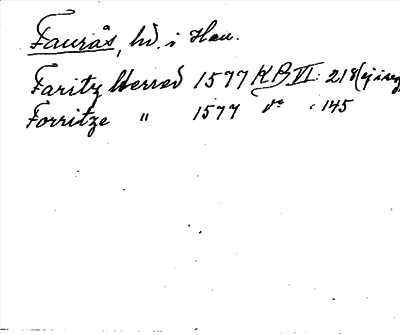 Faurås, hd. i Hall.
Faritz Herred 1577 KB VI: 218 (ej i reg
Forritze " 1577 do : 145